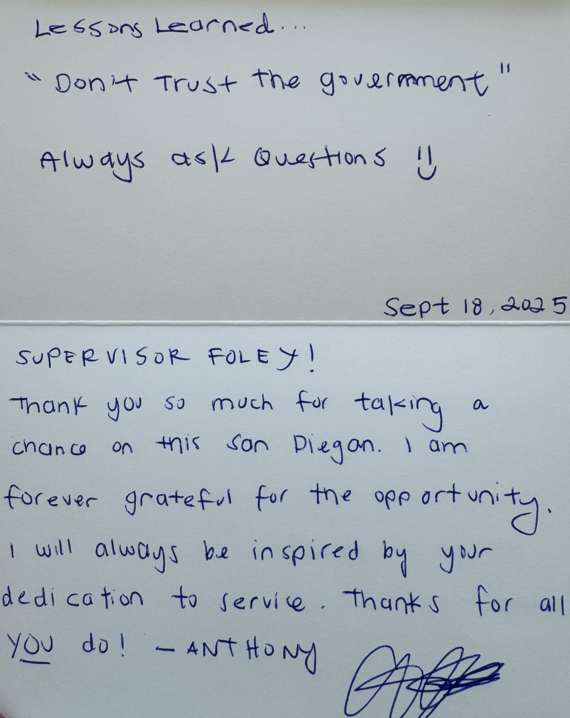 Lessons Learned...
"Don't Trust the government"
Always ask Questions
Sept 18, 2025
SUPERVISOR FOLEY!
Thank you so much for taking a
chance on this San Diegan. I am
forever grateful for the opportunity.
I will always be inspired by your
dedication to service. Thanks for all
YOU do! - ANTHONY